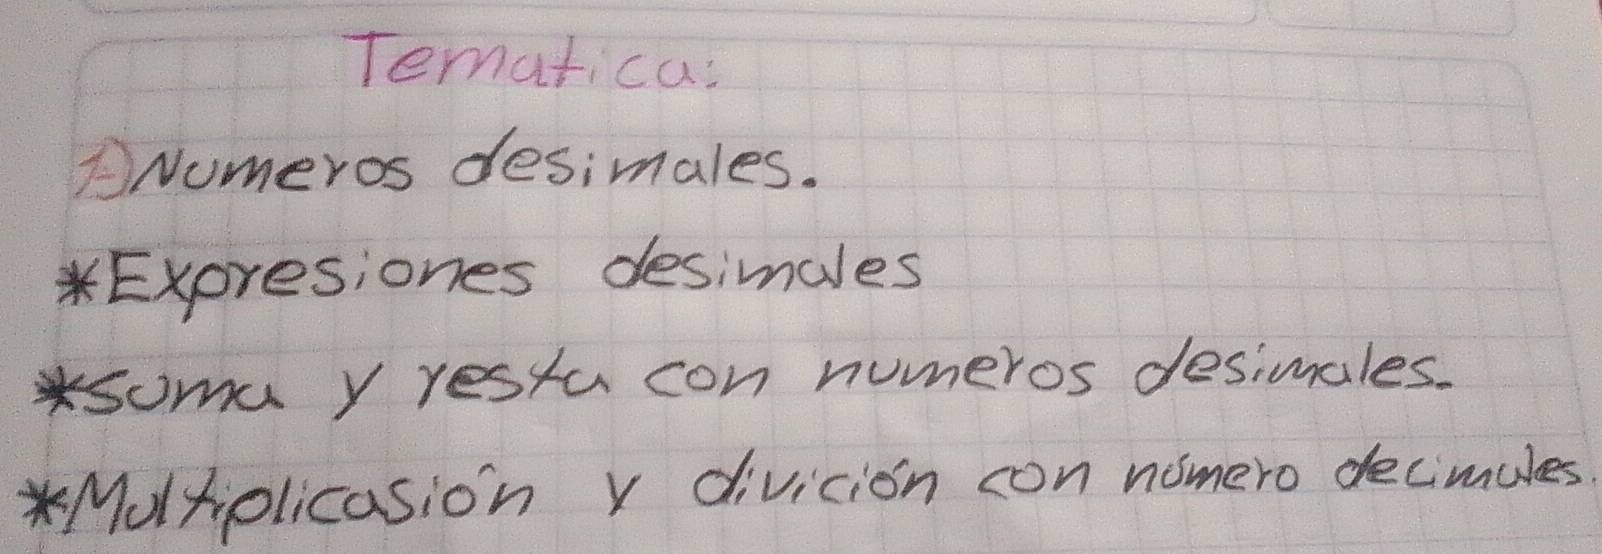 Tematica:
1) Numeros desimales.
*Expresiones desimales
*suma y resta con numeros desimales.
*Multiplicasión y divición con número decimales.